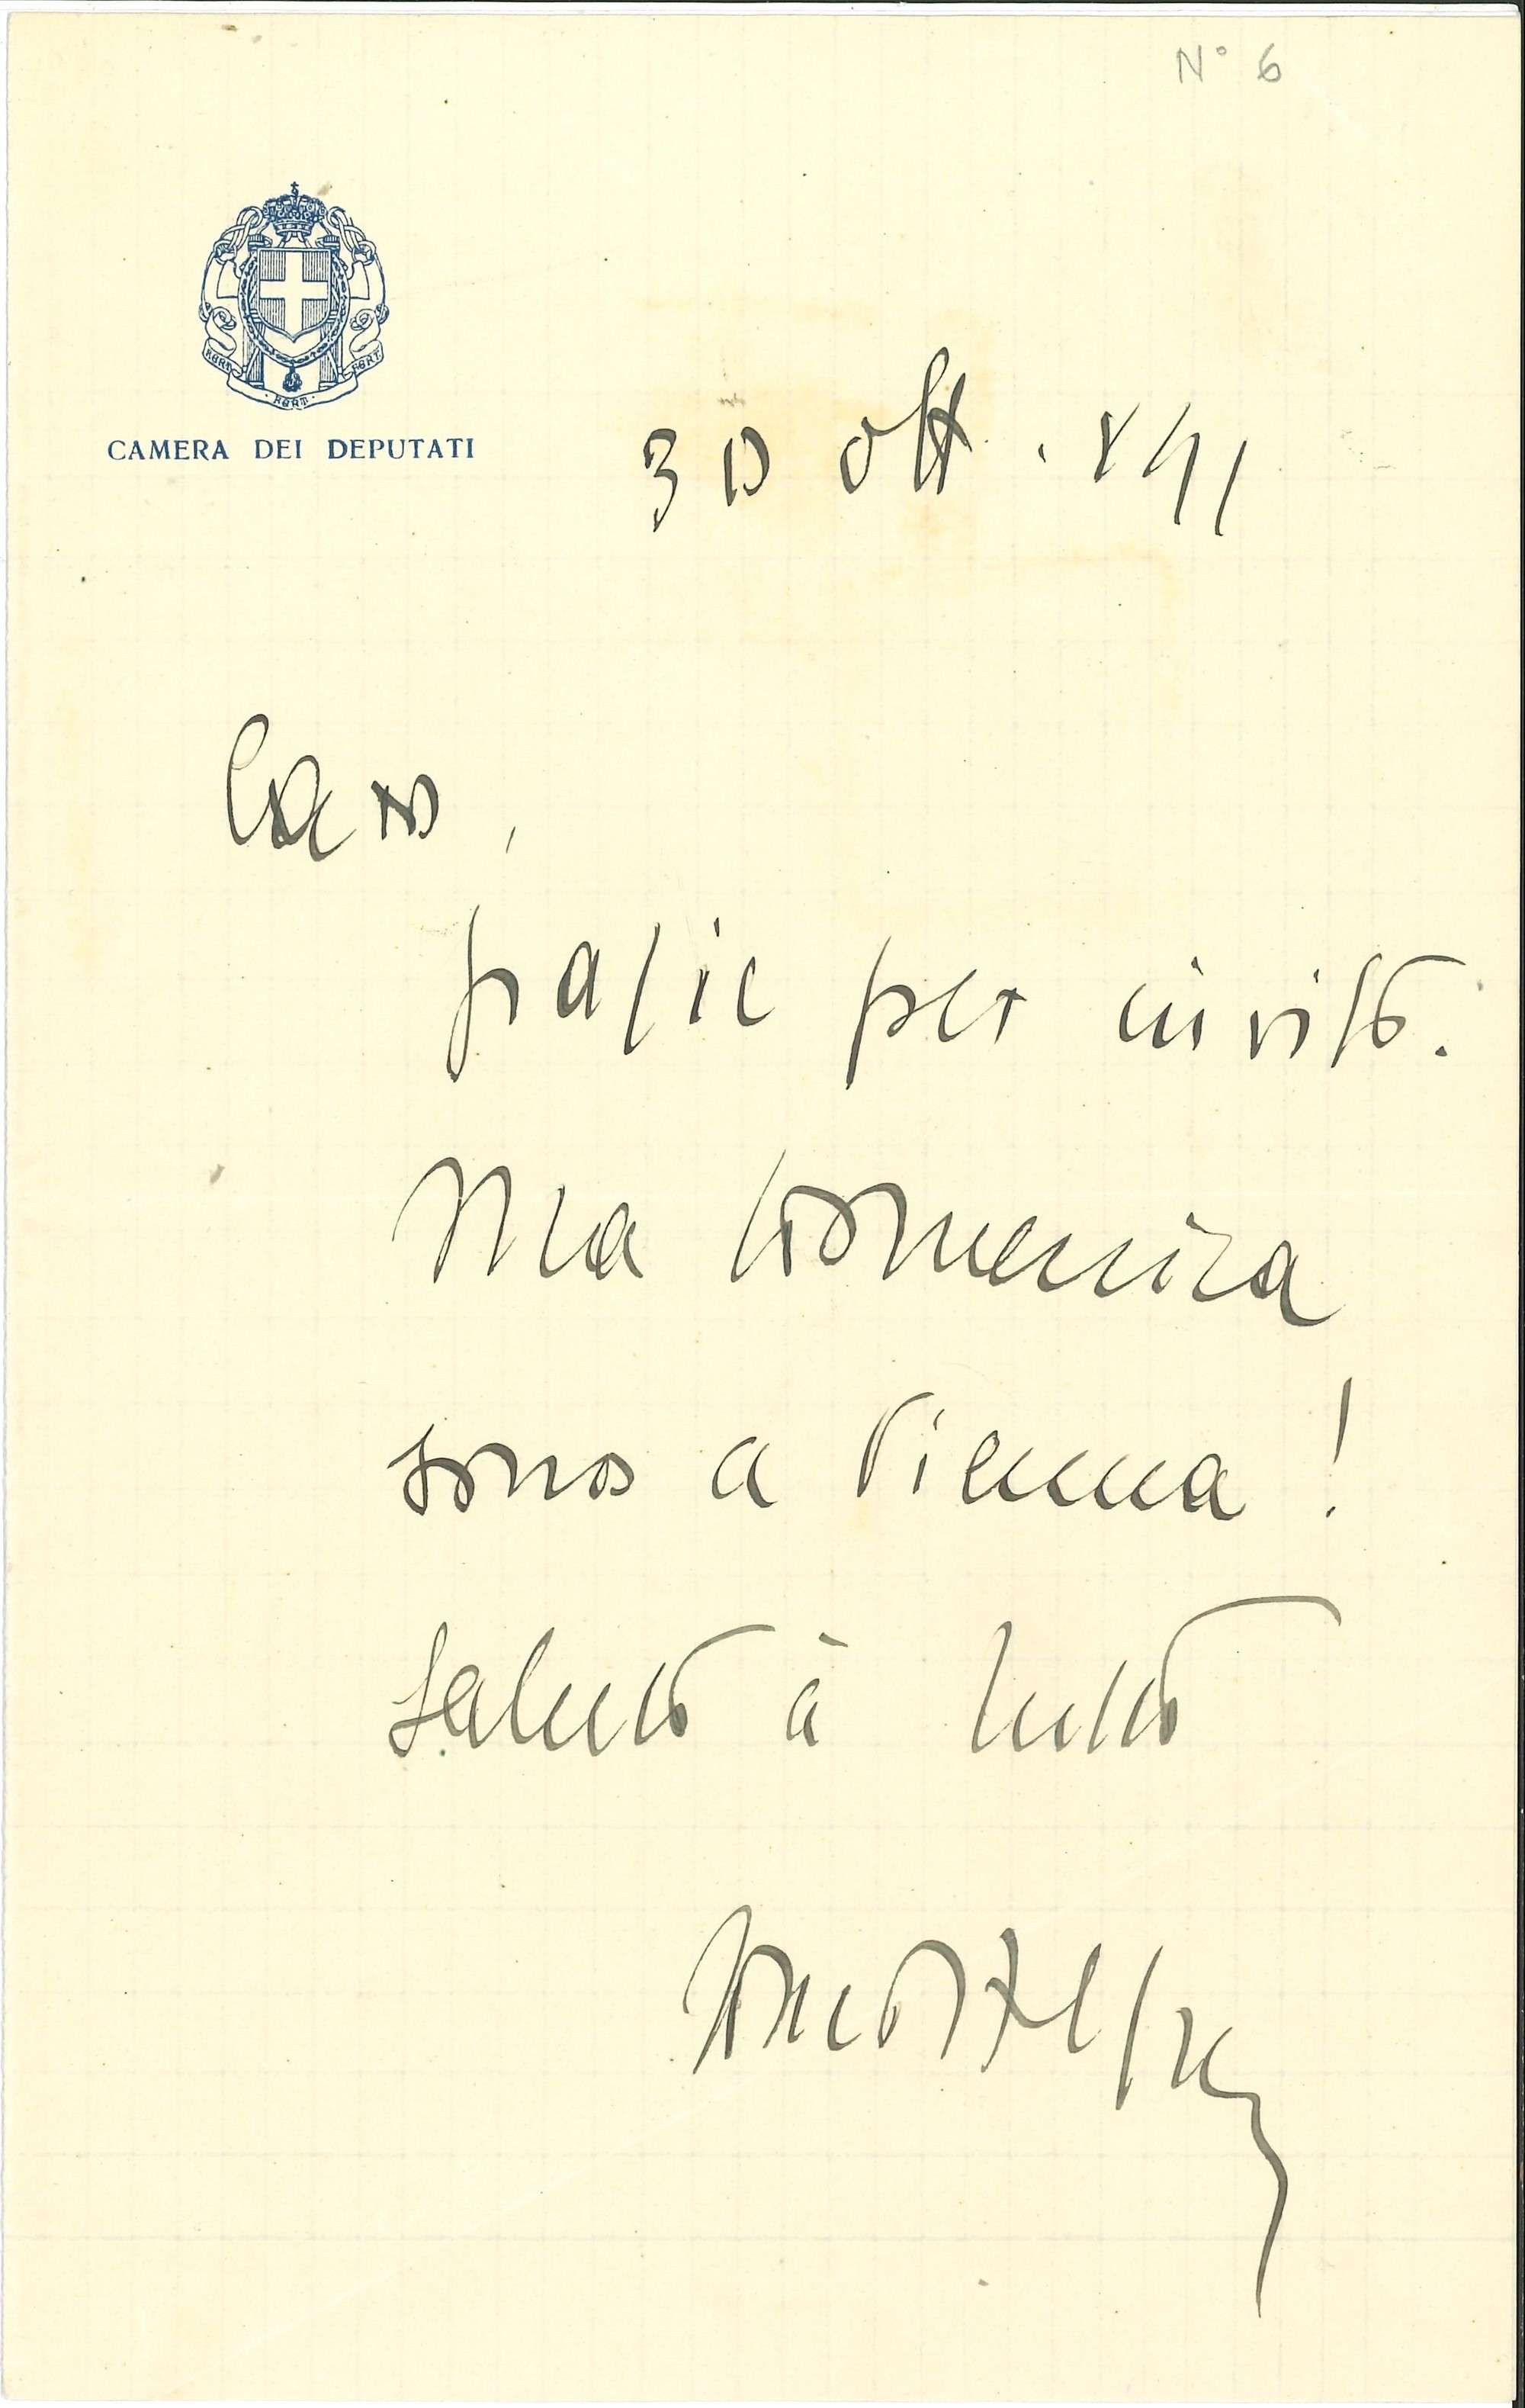 N° 6
FERT FERT FERT
CAMERA DEI DEPUTATI
30 ott. XVI
Caro,
grazie per invito.
Ma domenica
sono a Vienna!